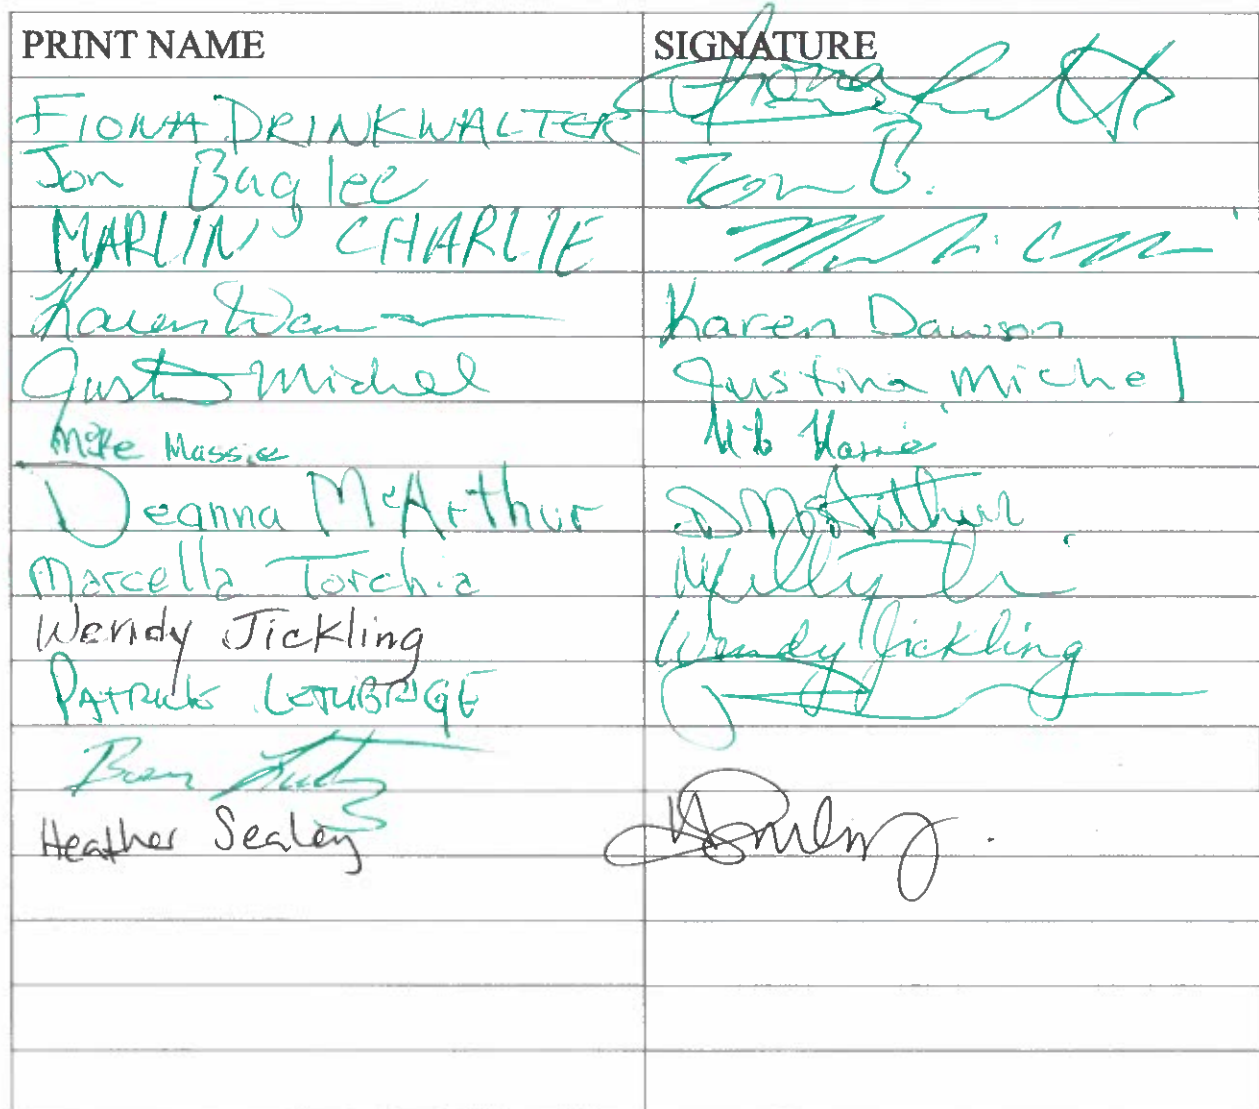 PRINT NAME SIGNATURE
FIONA DRINKWALTER Fiona
Jon Baglee Jon B.
MARLIN CHARLIE
Karen Karen Dawson
Justina Michel Justina Michel
Mike Massie
Deanna McArthur D McArthur
Marcella Torchia
Wendy Jickling Wendy Jickling
PATRICK LETHBRIGE
Heather Sealey